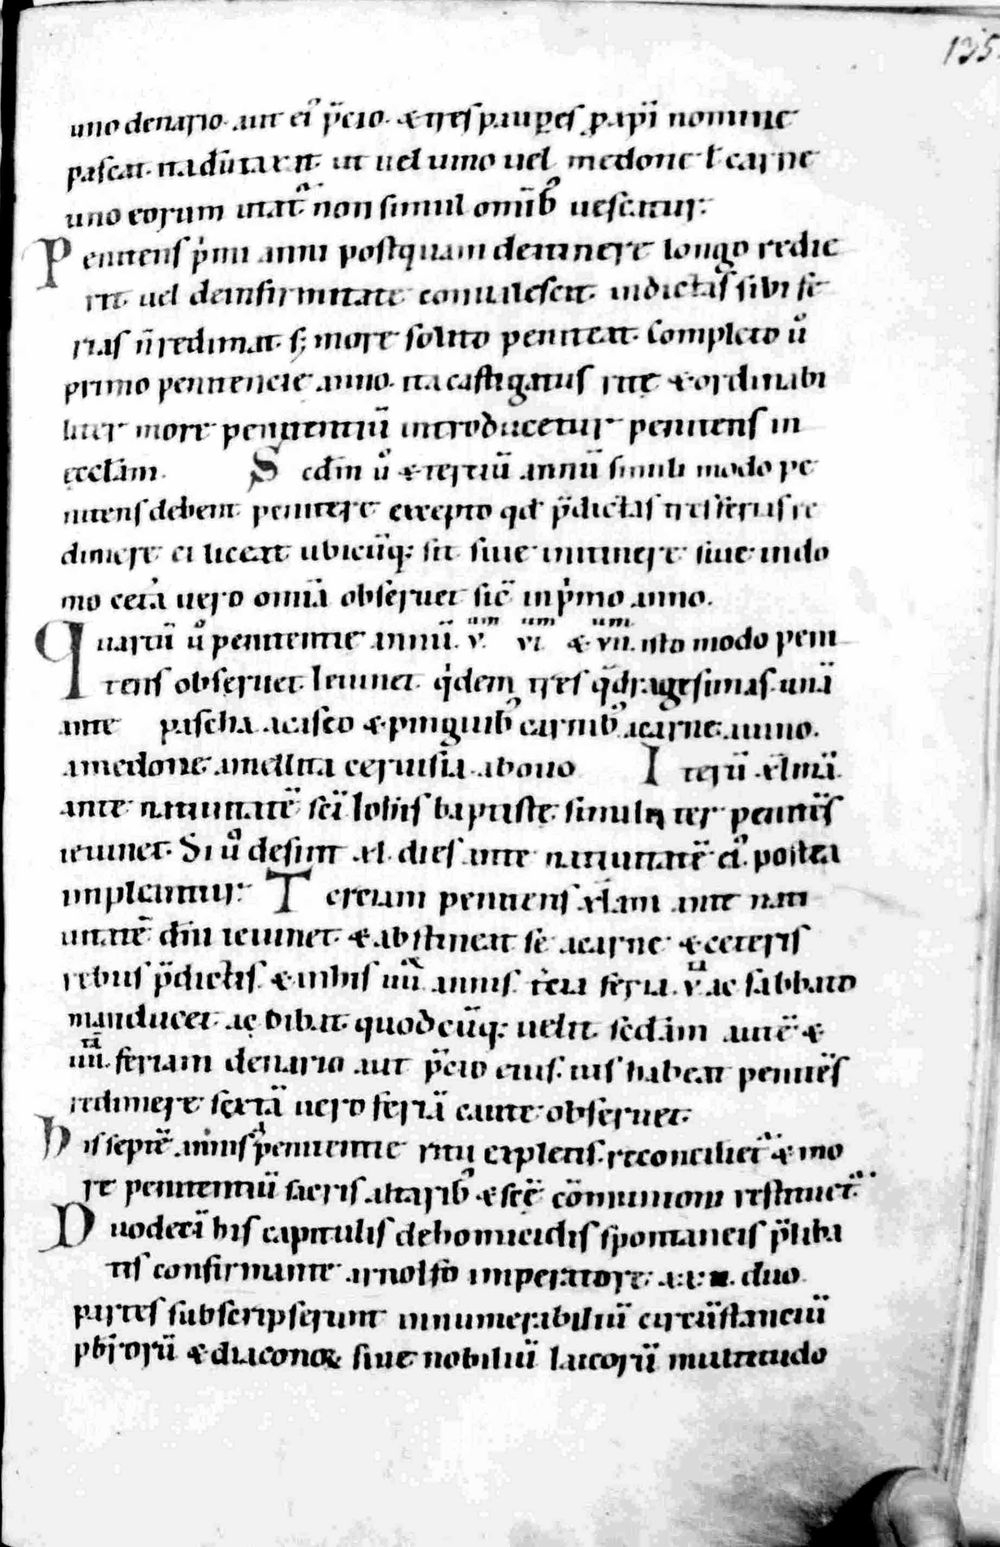 135
uno denario. aut ei᷒ p̄cio. & tres paup̱es ꝓ xp̄i nomine
pascat. ita dūtaxat. ut uel uino uel medone ł carne
uno eorum utat᷑ non simul omīb᷒ uescatur.
Penitens p̓mi anni postquam de itinere longo redie
rit. uel de infirmitate conualescit. indictas sibi fe
rias n̄ redimat. s; more solito peniteat. Completo u᷎
primo penitencie anno. ita castigatus rite & ordinabi
liter more penitentiū introducetur penitens in
ęcclām. Scdm̄ u᷎ & tertiū annū simili modo pe
nitens debent penitere excepto qđ p̄dictas tres ferias re
dimere ei liceat ubicūq; sit siue in itinere siue in do
mo cetā uero omīa obseruet sic̄ in p̓mo anno.
Quartū u᷎ penitentie annū. v.ᵘᵐ vi.ᵘᵐ & vii.ᵘᵐ isto modo peni
tens obseruet. Ieiunet q̓dem tres q̄dragesimas. unā
ante pascha. a caseo & pinguib᷒ carnib᷒ a carne. a uino.
a medone. a mellita ceruisia. ab ouo Iterū .xl̄mā.
ante natiuitatē scī Ioh̄is baptistę. simulit̄ ter penitēs
ieiunet. Si u᷎ desunt .xl. dies ante natiuitatē ei᷒. postea
impleantur. Tercium penitens .xl̄am ante nati
uitatē dn̄i ieiunet. & abstineat se a carne & ceteris
rebus p̄dictis. & in his iiiior annis. t̓cia feria. v.ᵗᵃ ac sabbato
manducet ac bibat. quodcūq; uelit. secdam autē &
iiii.ᵗᵃᵐ feriam denario aut p̄cio eius. ius habeat penitēs
redimere sextā uero feriā caute obseruet.
His septē annis penitentie ritu expletis. reconciliet᷑ & mo
re penitentiū sacris altarib᷒ & scē cōmunioni restituet᷑.
Duodecī his capitulis de homicidis spontaneis p̄liba
tis confirmante arnolfo imperatore. xx.ii. duo
partes subscripserunt innumerabiliū circūstanciū
pbr̄orū & diaconoꝝ siue nobiliū laicorū multitudo